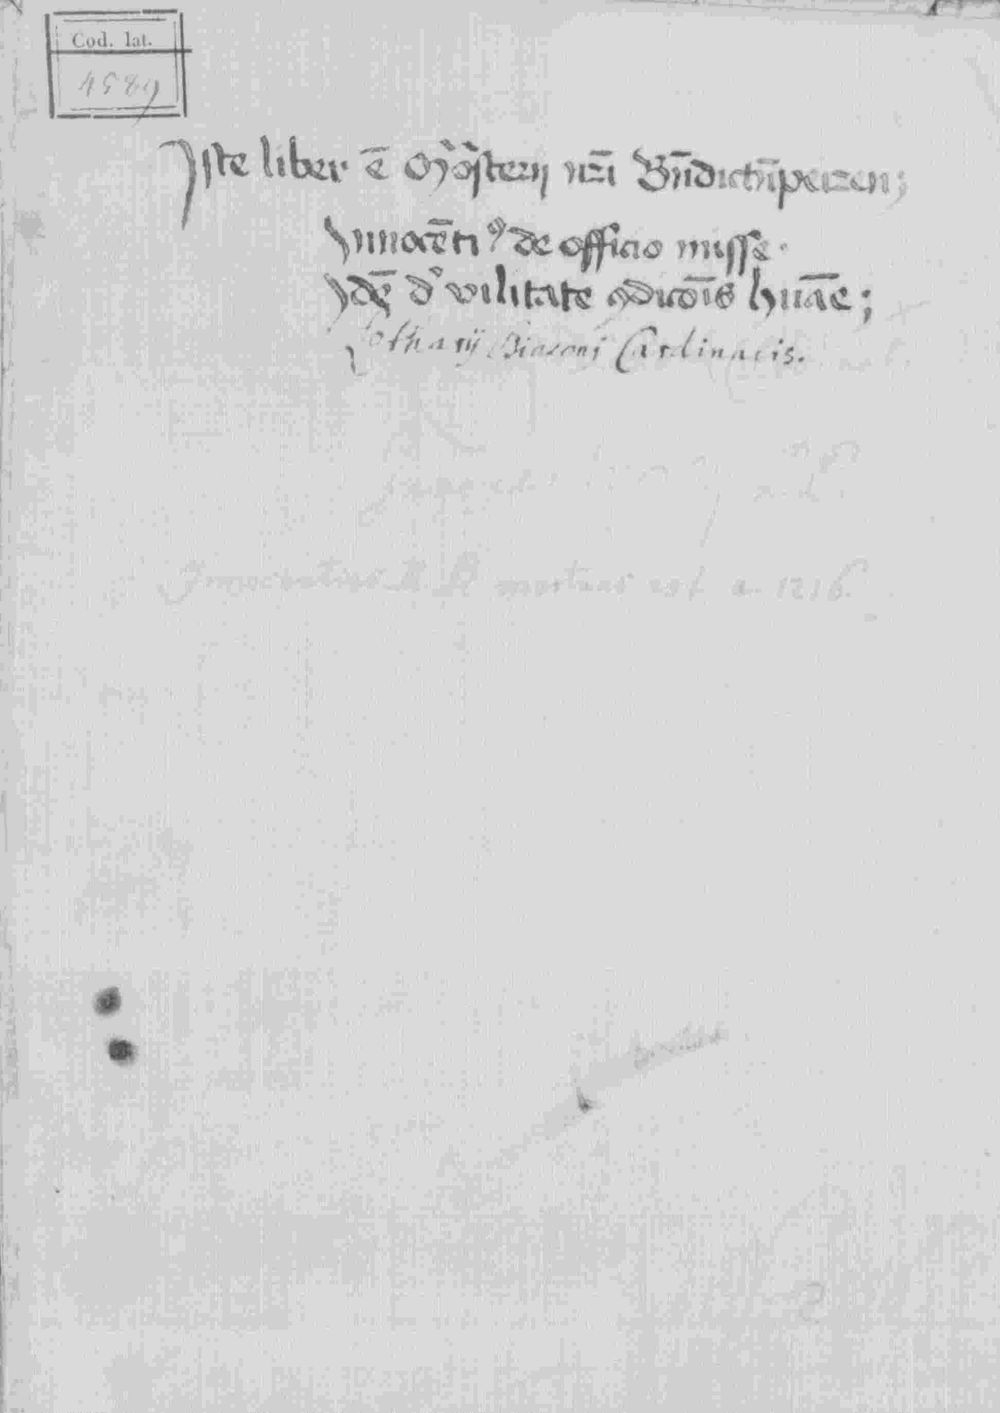 Cod. lat.
4589
Iste liber ē Moãsterij nr̄i Bn̄dictn̄peuren;
Innocētiꝰ de officio misse.
Idē̄ d' vilitate ꝯdic̄oīs hūāe;
Lotharij Diaconi Cardinalis.
Innocentius III P mortuus est a. 1216.